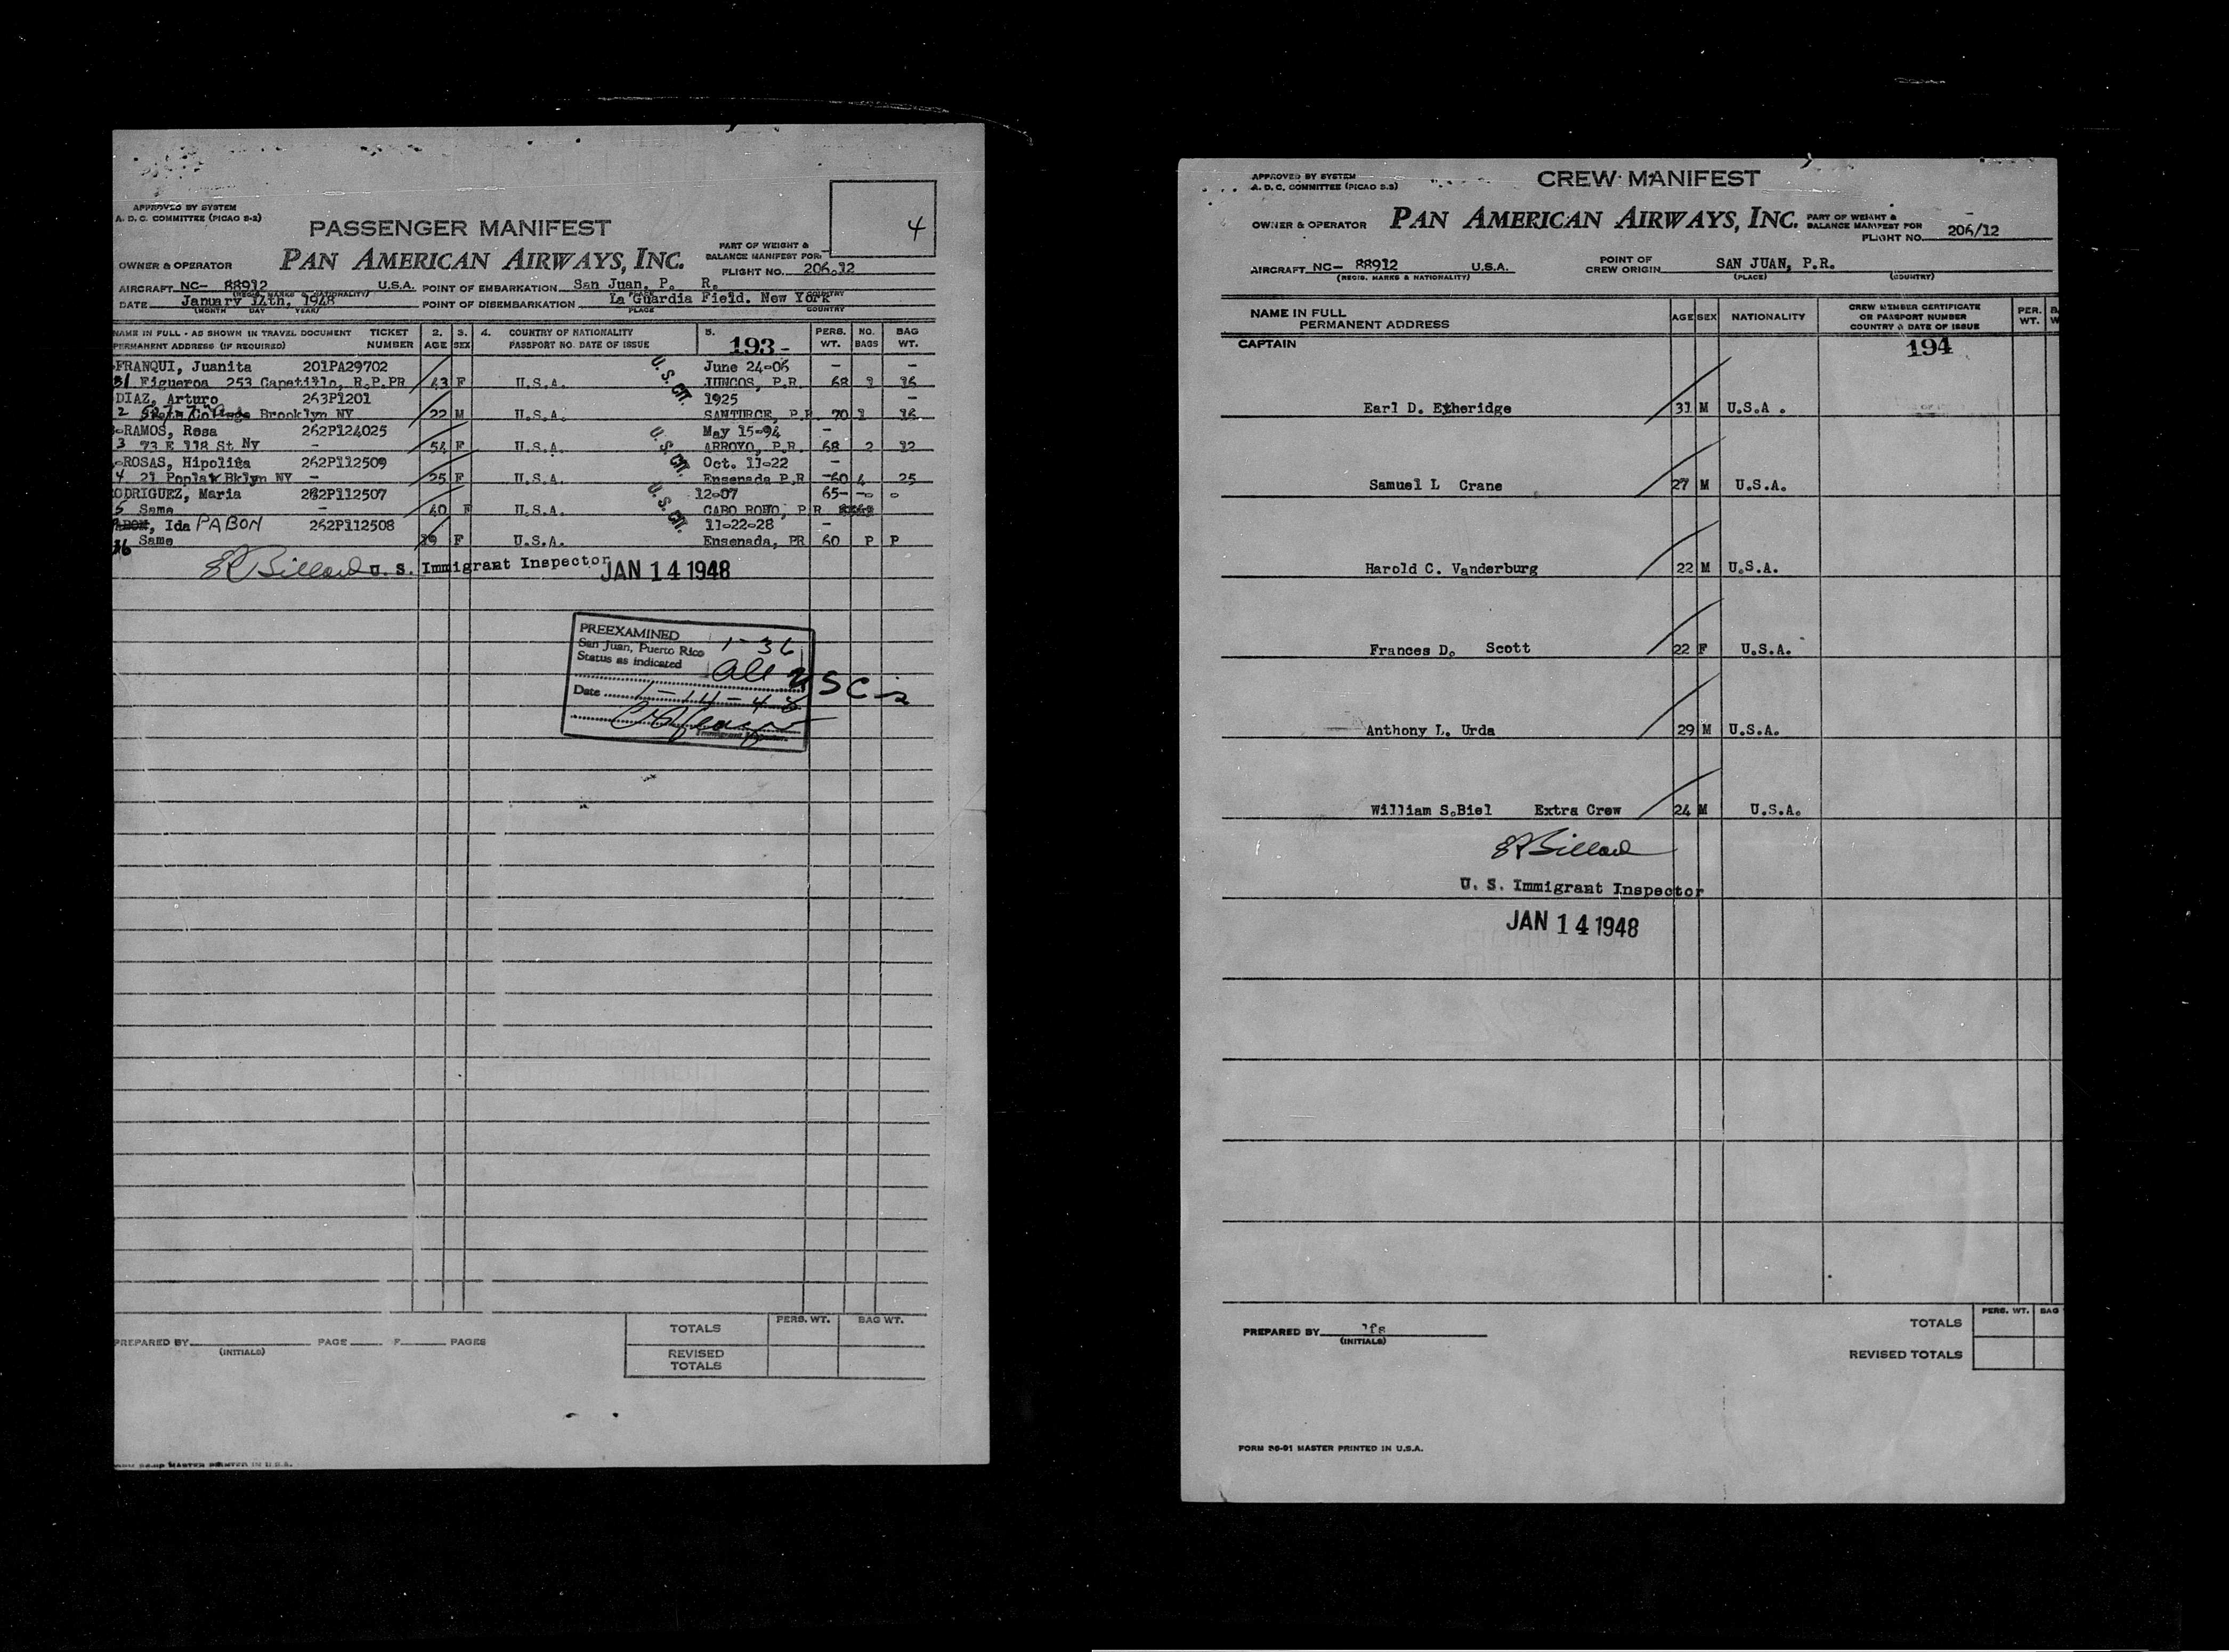 APPROVED BY SYSTEM
A. D. C. COMMITTEE (PICAO S-2)
4
PASSENGER MANIFEST
OWNER & OPERATOR PAN AMERICAN AIRWAYS, INC.
PART OF WEIGHT &
BALANCE MANIFEST FOR
FLIGHT NO. 206.12
AIRCRAFT NC- 88912 U.S.A. POINT OF EMBARKATION San Juan, P. R.
(REGIS. MARKS & NATIONALITY) PLACE COUNTRY
DATE January 14th, 1948 POINT OF DISEMBARKATION La Guardia Field. New York
(MONTH DAY YEAR) PLACE COUNTRY
NAME IN FULL - AS SHOWN IN TRAVEL DOCUMENT TICKET 2. 3. 4. COUNTRY OF NATIONALITY 5. PERS. NO. BAG
PERMANENT ADDRESS (IF REQUIRED) NUMBER AGE SEX PASSPORT NO. DATE OF ISSUE 193- WT. BAGS WT.
FRANQUI, Juanita 201PA29702 June 24-06 - -
31 Figueroa 253 Capetillo, R.P.PR 43 F U.S.A. U.S. CIT. JUNCOS, P.R. 68 1 16
DIAZ, Arturo 263P1201 1925 -
2 Brooklyn NY 22 M U.S.A. SANTURCE, P.R 70 1 16
RAMOS, Rosa 262P124025 May 15-94 -
3 73 E 118 St NY - 54 F U.S.A. U.S. CIT. ARROYO, P.R. 68 2 12
ROSAS, Hipolita 262P112509 Oct. 11-22 -
4 21 Poplar Bklyn NY - 25 F U.S.A. Ensenada P.R -60 4 25
ODRIGUEZ, Maria 262P112507 12-07 65- -
5 Same - 40 F U.S.A. U.S. CIT. CABO ROHO, P R
, Ida PABON 262P112508 11-22-28 -
36 Same 19 F U.S.A. Ensenada, PR 60 P P
U. S. Immigrant Inspector JAN 14 1948
PREEXAMINED
San Juan, Puerto Rico 1-36
Status as indicated all USC-s
Date 1-14-48
Immigrant Inspector
TOTALS PERS. WT. BAG WT.
PREPARED BY PAGE F PAGES
(INITIALS)
REVISED
TOTALS
APPROVED BY SYSTEM
A. D. C. COMMITTEE (PICAO S-2)
CREW MANIFEST
OWNER & OPERATOR PAN AMERICAN AIRWAYS, INC.
PART OF WEIGHT &
BALANCE MANIFEST FOR
FLIGHT NO. 206/12
AIRCRAFT NC- 88912 U.S.A. POINT OF CREW ORIGIN SAN JUAN, P.R.
(REGIS. MARKS & NATIONALITY) (PLACE) (COUNTRY)
NAME IN FULL
PERMANENT ADDRESS
AGE SEX NATIONALITY
CREW MEMBER CERTIFICATE
OR PASSPORT NUMBER
COUNTRY & DATE OF ISSUE
PER.
WT.
CAPTAIN 194
Earl D. Etheridge 31 M U.S.A.
Samuel L Crane 27 M U.S.A.
Harold C. Vanderburg 22 M U.S.A.
Frances D. Scott 22 F U.S.A.
Anthony L. Urda 29 M U.S.A.
William S.Biel Extra Crew 24 M U.S.A.
U. S. Immigrant Inspector
JAN 14 1948
PERS. WT. BAG
TOTALS
PREPARED BY
(INITIALS)
REVISED TOTALS
FORM 86-91 MASTER PRINTED IN U.S.A.